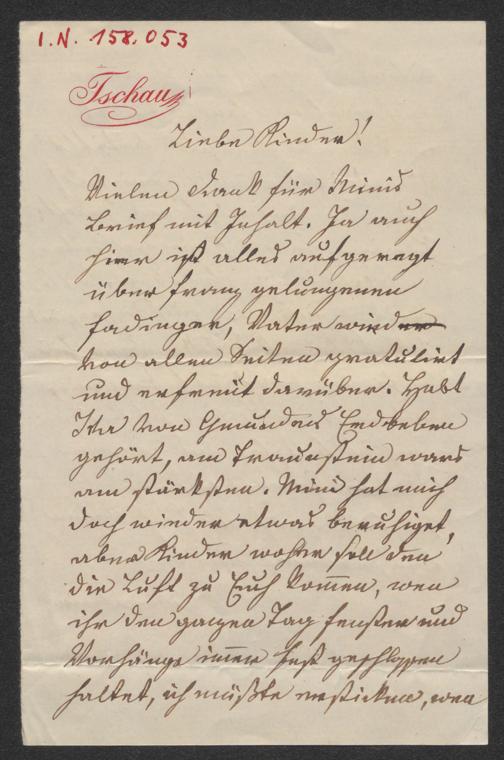 I.N. 158.053
Tschau
Liebe Kinder!
Vielen Dank für Minis
Brief mit Inhalt. Ja auch
hier ist alles aufgeregt
über Franz gelungenen
Fadinger, Vater wird
von allen Seiten gratulirt
und erfreut darüber. Habt
Ihr von Gmundens Erdbeben
gehört, am Traunstein wars
am stärksten. Mini hat mich
doch wieder etwas beruhiget,
aber Kinder woher soll den
die Luft zu Euch kommen, wen
ihr den ganzen Tag Fenster und
Vorhänge immer fest geschlossen
haltet, ich müßte ersticken, wen